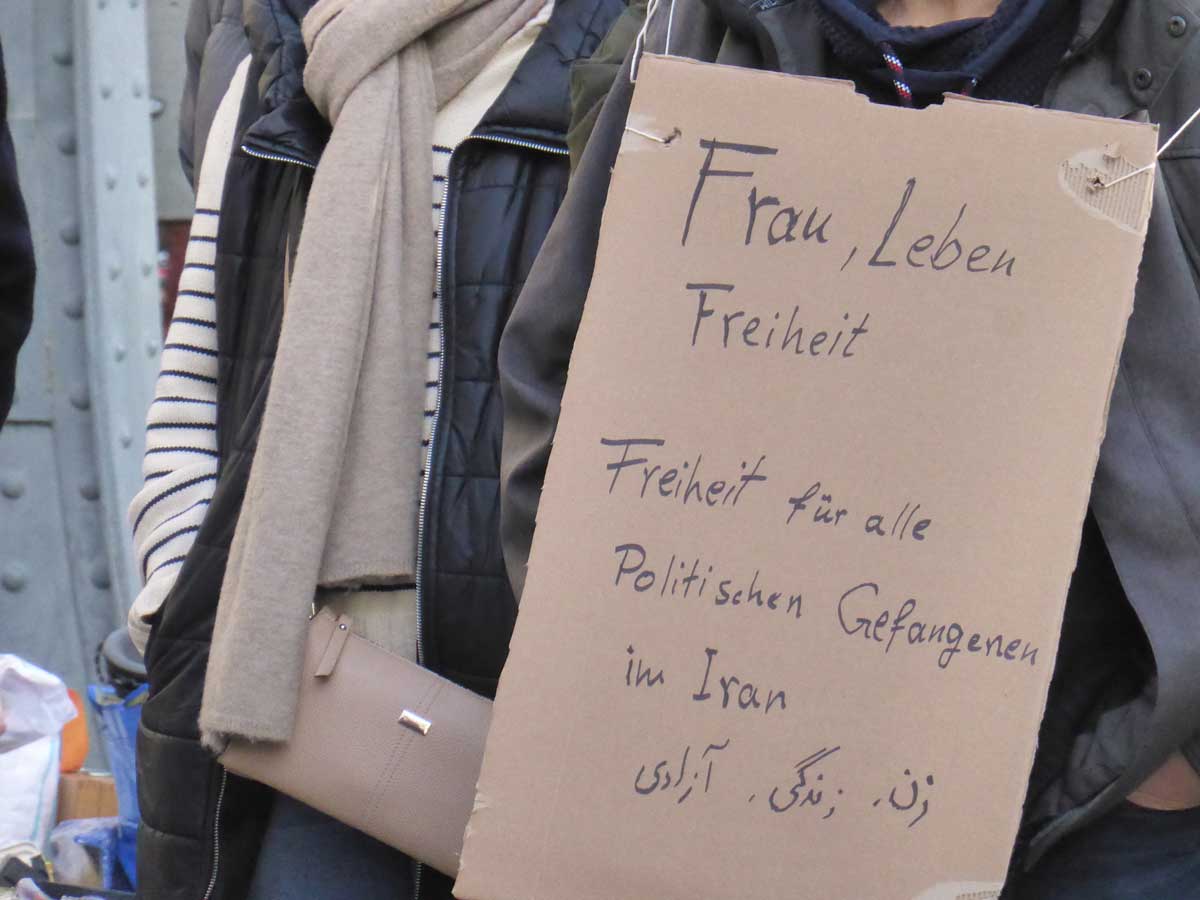 Frau, Leben
Freiheit
Freiheit für alle
Politischen Gefangenen
im Iran
زن، زندگی، آزادی